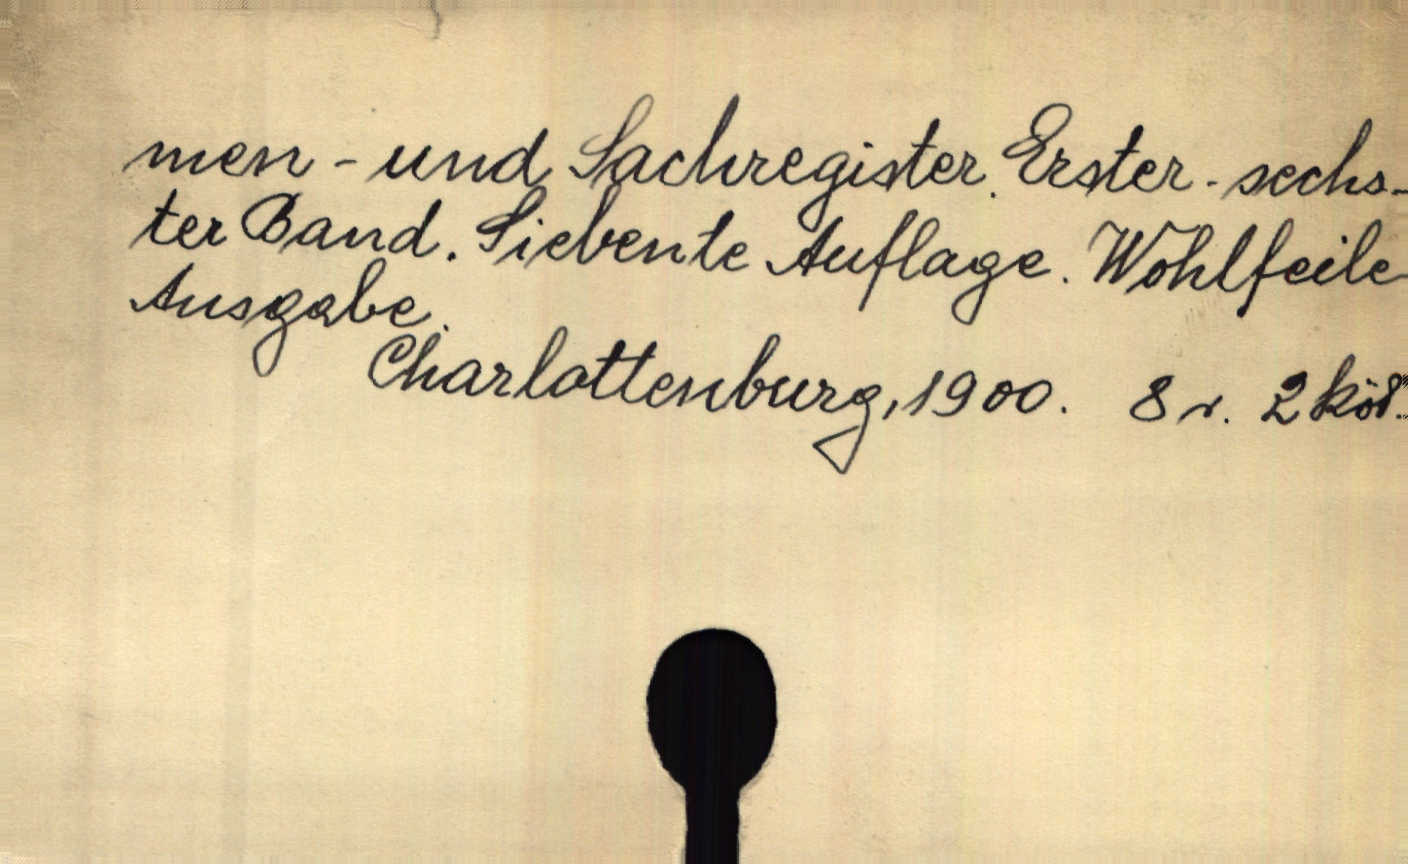 men - und Sachregister. Erster - sechs-
ter Band. Siebente Auflage. Wohlfeile
Ausgabe.
Charlottenburg, 1900. 8 r. 2 köt.